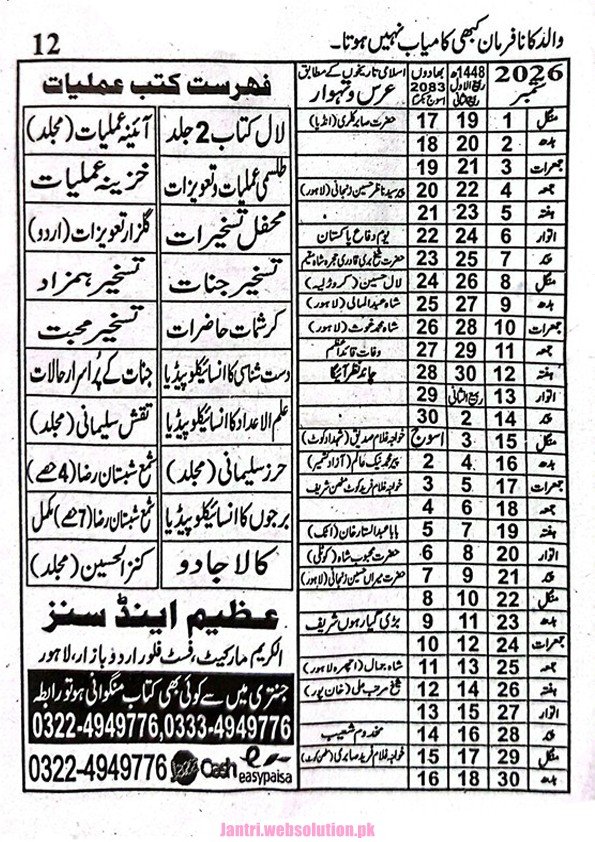 والد کا نافرمان کبھی کامیاب نہیں ہوتا۔
12
2026 ستمبر | 1448ھ ربیع الاول ربیع الثانی | بھادوں 2083 اسوج بکرمی | اسلامی تاریخوں کے مطابق عرس و تہوار
منگل 1 19 17 حضرت صابر کلیری (انڈیا)
بدھ 2 20 18
جمعرات 3 21 19
جمعہ 4 22 20 پیر سید ناظر حسین زنجانی (لاہور)
ہفتہ 5 23 21
اتوار 6 24 22 یوم دفاع پاکستان
پیر 7 25 23 حضرت شیخ بری قادری حجرہ شاہ مقیم
منگل 8 26 24 لال حسین (کروڑ لیہ)
بدھ 9 27 25 شاہ عبدالمالی (لاہور)
جمعرات 10 28 26 شاہ محمد غوث (لاہور)
جمعہ 11 29 27 وفات قائد اعظم
ہفتہ 12 30 28 چاند نظر آئیگا
اتوار 13 ربیع الثانی 29
پیر 14 2 30
منگل 15 3 اسوج خواجہ غلام صدیق (شہداد کوٹ)
بدھ 16 4 2 پیر محمد نیک عالم (آزاد کشمیر)
جمعرات 17 5 3 خواجہ غلام فرید کوٹ مٹھن شریف
جمعہ 18 6 4
ہفتہ 19 7 5 بابا عبدالستار خان (اٹک)
اتوار 20 8 6 حضرت محبوب شاہ (کوٹلی)
پیر 21 9 7 حضرت میراں حسین زنجانی (لاہور)
منگل 22 10 8
بدھ 23 11 9 بڑی گیارہوں شریف
جمعرات 24 12 10
جمعہ 25 13 11 شاہ جمال (اچھرہ لاہور)
ہفتہ 26 14 12 شیخ مرحب علی (خان پور)
اتوار 27 15 13
پیر 28 16 14 مخدوم شعیب
منگل 29 17 15 خواجہ غلام فرید صابری (مٹھن کوٹ)
بدھ 30 18 16
فہرست کتب عملیات
لال کتاب 2 جلد | آئینہ عملیات (مجلد)
طلسمی عملیات و تعویزات | خزینہ عملیات
محفل تسخیرات | گلزار تعویزات (اردو)
تسخیر جنات | تسخیر ہمزاد
کرشمات حاضرات | تسخیر محبت
دست شناسی کا انسائیکلوپیڈیا | جنات کے پراسرار حالات
علم الاعداد کا انسائیکلوپیڈیا | نقش سلیمانی (مجلد)
حرز سلیمانی (مجلد) | شمع شبستان رضا (4 حصے)
برجوں کا انسائیکلوپیڈیا | شمع شبستان رضا (7 حصے) مکمل
کالا جادو | کنز الحسین (مجلد)
عظیم اینڈ سنز
الکریم مارکیٹ، فسٹ فلور اردو بازار، لاہور
جنتری میں سے کوئی بھی کتاب منگوانی ہو تو رابطہ
0322-4949776,0333-4949776
0322-4949776 Cash easypaisa
Jantri.websolution.pk